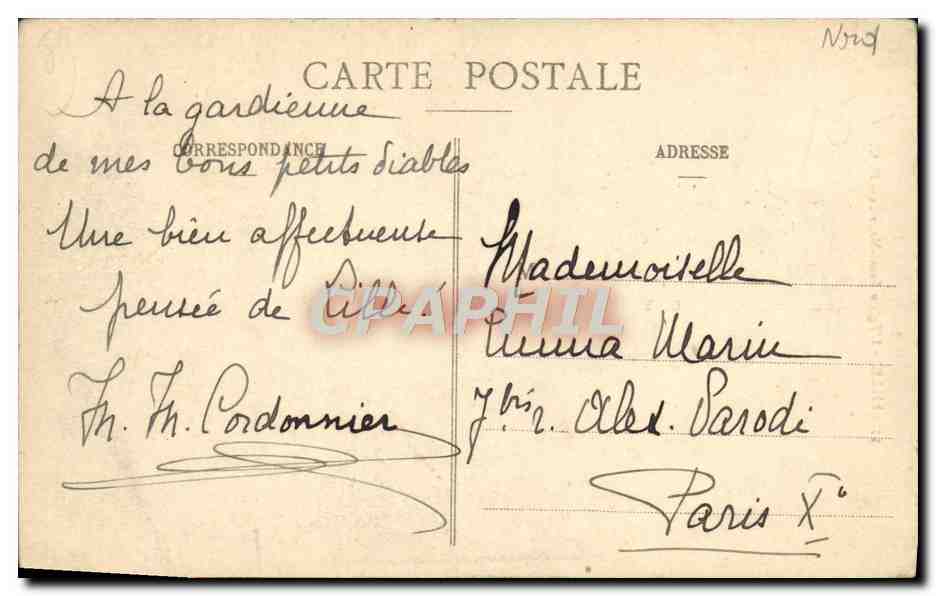 Nord
CARTE POSTALE
A la gardienne
CORRESPONDANCE
de mes bons petits diables
Une bien affectueuse
pensée de Lille!
Th. Th. Cordonnier
ADRESSE
Mademoiselle
Emma Marin
7 bis r. Alex. Parodi
Paris X°
CPAPHIL